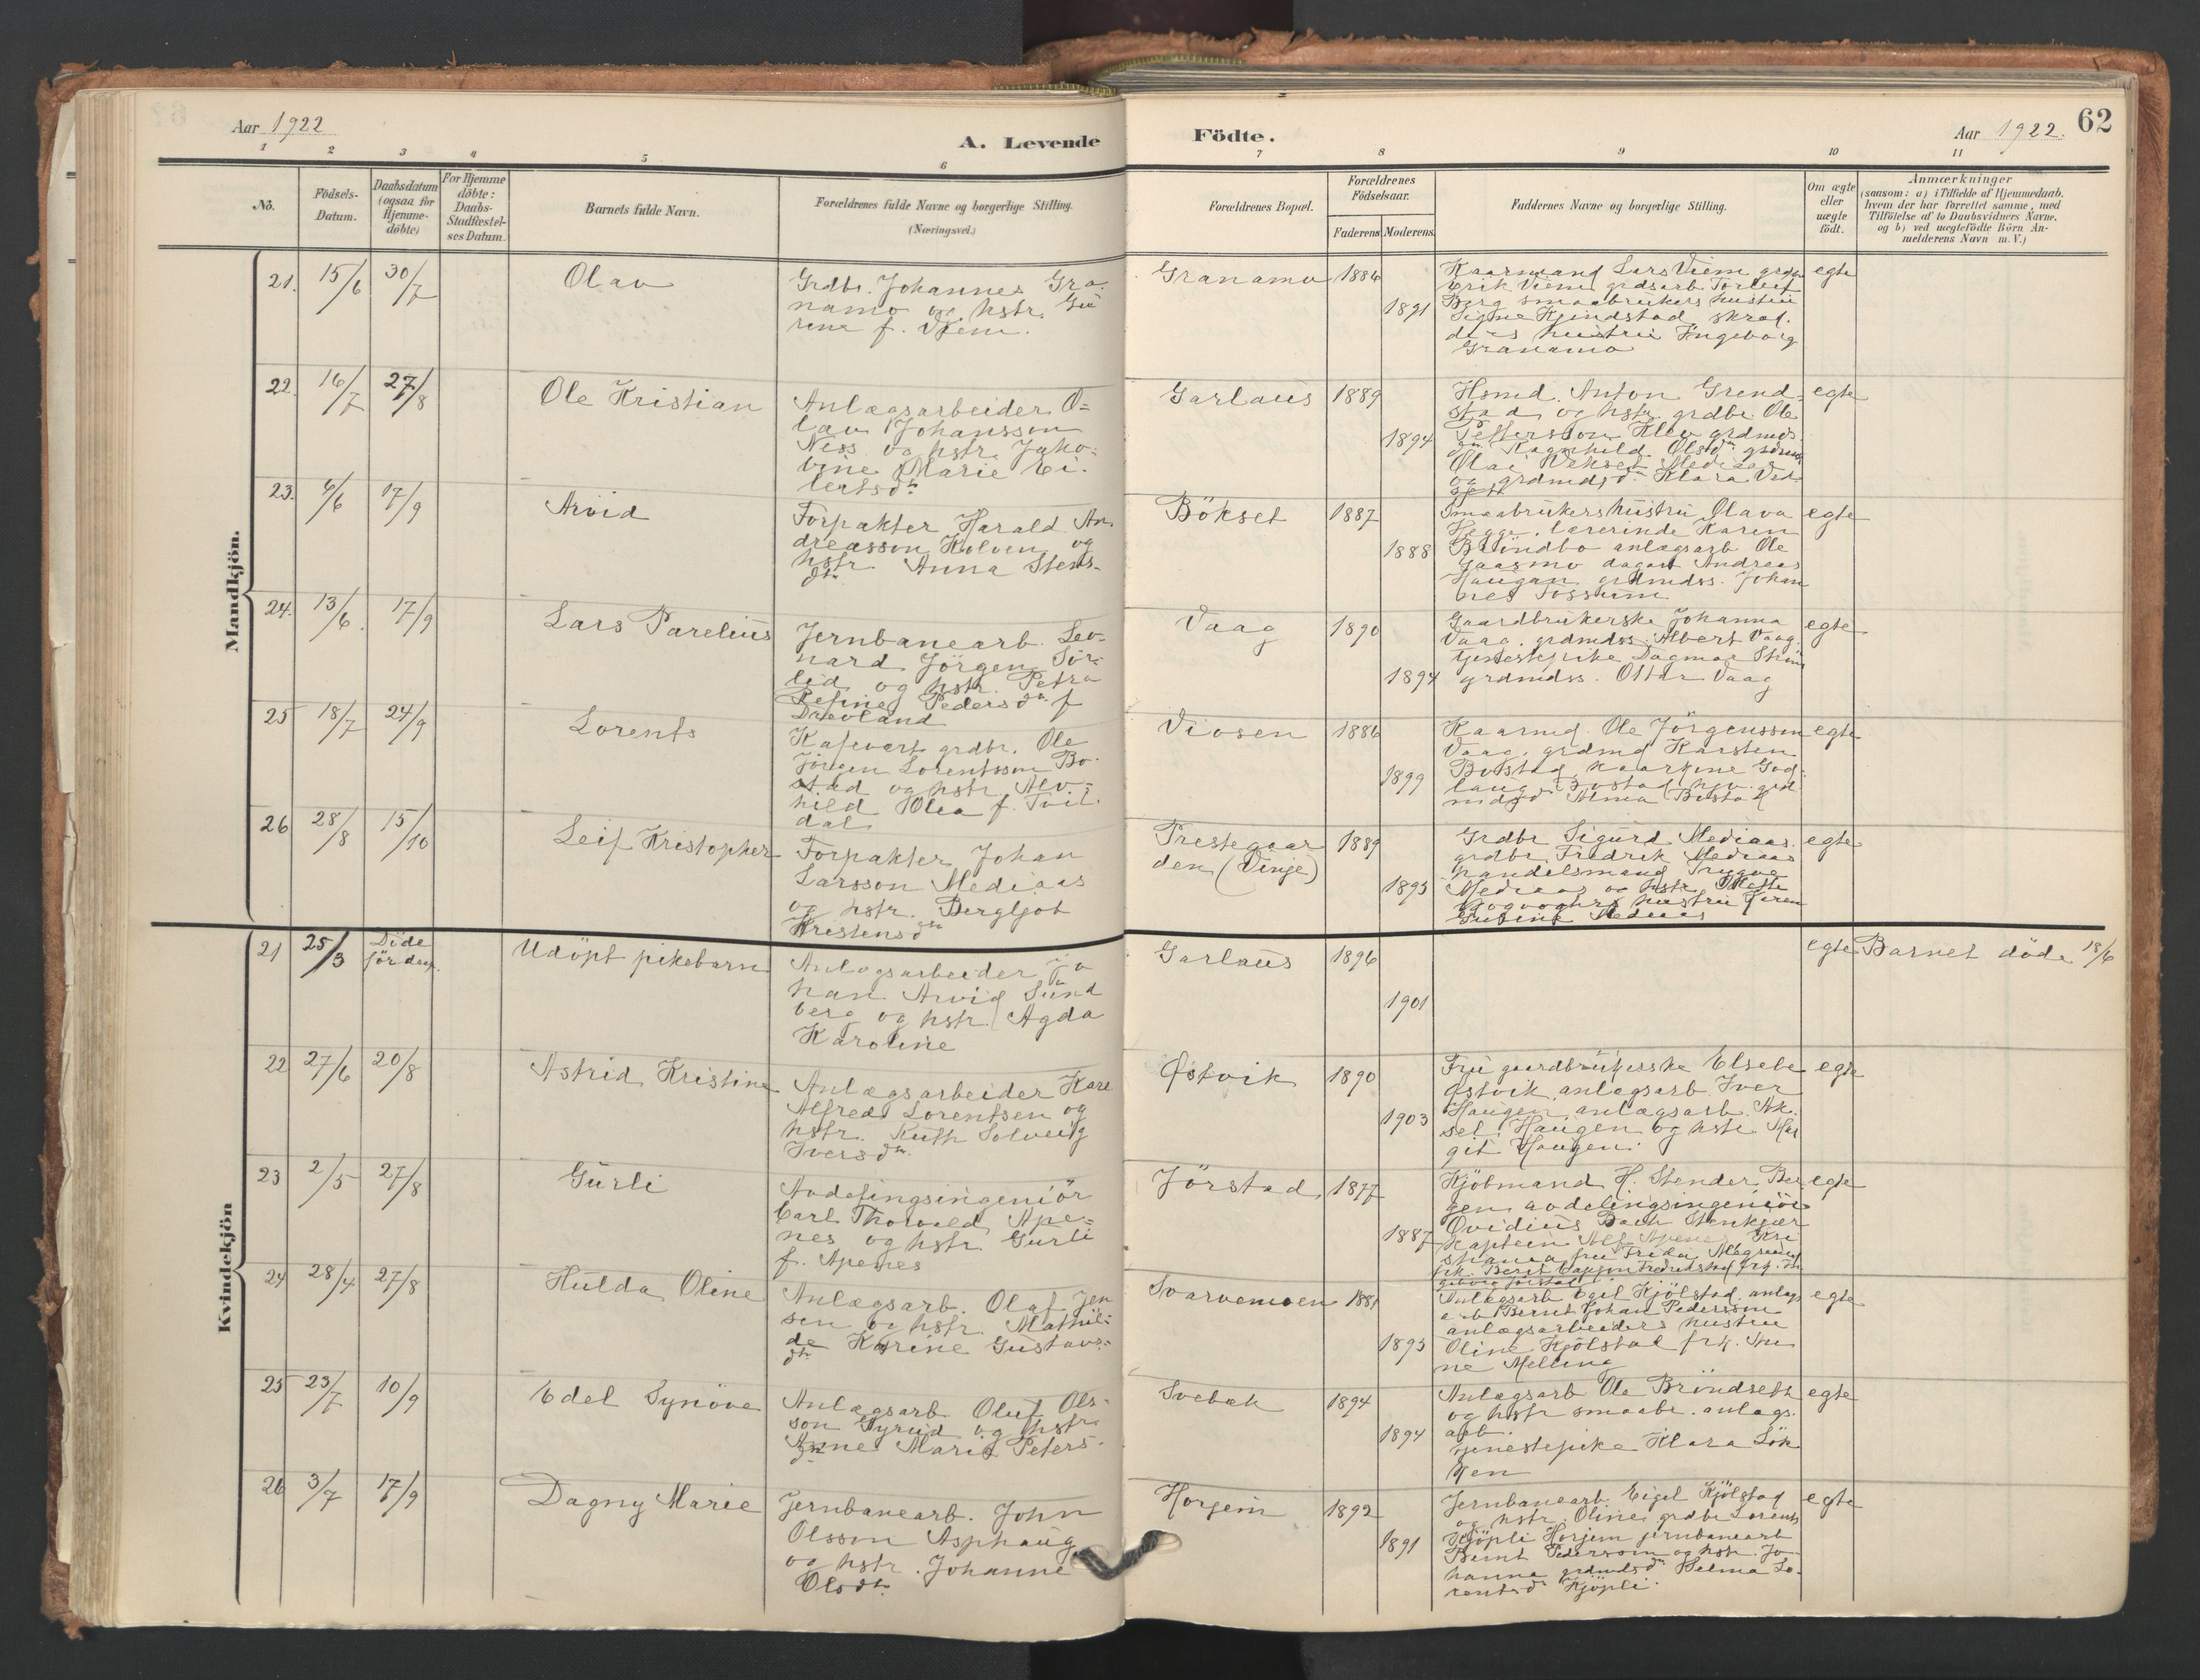 Aar 1922
A. Levende
Födte.
Aar 1922.
62
1 2 3 4 5 6 7 8 9 10 11
No.
Födsels-Datum.
Daabsdatum (ogsaa for Hjemme-döbte)
For Hjemme döbte: Daabs-Stadfæstel-ses Datum.
Barnets fulde Navn.
Forældrenes fulde Navne og borgerlige Stilling.
(Næringsvei.)
Forældrenes Bopæl.
Forældrenes Födselsaar.
Faderens Moderens
Faddernes Navne og borgerlige Stilling.
Om ægte eller uægte födt.
Anmærkninger
(saasom: a) i Tilfælde af Hjemmedaab.
hvem der har forrettet samme, med
Tilföielse af to Daabsvidners Navne.
og b) ved uægtefödte Börn An-
melderens Navn m. V.)
Mandkjön.
21. 15/6 30/7 Olav
Grdbr. Johannes Gra-
namo og hstr. Gu
rine f. Viem.
Granamo 1886 1891
Kaarmand Lars Viem grdbr
Erik Viem grdsarb. Torleif
Berg smaabrukers hustru
Signe Kjendstad skræd.
ders hustru Ingeborg
Granamo
egte
22. 16/7 27/8 Ole Kristian
Anlægsarbeider O-
lav Johansson
Ness og hstr. Jako-
bine Marie Ei-
lertsdtr
Garlaus 1889 1894
Hsmd. Anton Grend-
stad og hstr. grdbr. Ole
Pettersson Klev grdmds.
dtr Ragnhild Olsdtr
Olai Mediaas
og grdmdsdtr Klara Ved
egte
23. 4/6 17/9 Arvid
Forpakter Harald An-
dreasson Holven og
hstr. Anna Stens-
dtr.
Bökset 1887 1888
Smaabrukers hustru Olava
Hegge, lærerinde Karen
Bröndbo anlægsarb Ole
Gaasmo dagarb Andreas
Haugan grdmdss. Johan
nes Fossum
egte
24. 13/6. 17/9 Lars Parelius
Jernbanearb. Leo-
nard Jörgen Sör-
lid og hstr. Petra
Petine Pedersdtr. f
Drevland
Vaag 1890 1894
Gaardbrukerske Johanna
Vaag, grdmdss. Albert Vaag.
tjenestepike Dagmar
grdmdss. Ottar Vaag
egte
25 18/7 24/9 Lorents
Kafevert grdbr. Ole
Jörgen Lorentsson Bo-
stad og hstr. Alv-
hild Olea f. Tvil-
dal
Viosen 1886 1899
Kaarmd. Ole Jörgensson
Vaag, grdmd Karsten
Botstad, kaarkone God-
laug Bostad
mdsdtr Alma Bostad
egte
26 28/8 15/10 Leif Kristopher
Forpakter Johan
Larsson Mediaas
og hstr. Bergljot
Kristensdtr
Prestegaar
den (Vinje) 1889 1895
Grdbr Sigurd Mediaas.
grdbr. Fredrik Mediaas
handelsmand Trygve
Mediaas og hstr.
hustru Karen
Mediaas
egte
Kvindekjön
21 25/3 Döde
för daap. Udöpt pikebarn
Anlægsarbeider Jo
han Arvid Sund
berg og hstr. Agda
Karoline
Garlaus 1896 1901
egte Barnet döde 18/6
22 27/6 20/8 Astrid Kristine
Anlægsarbeider Kare
Alfred Lorentsen og
hstr. Ruth Solveig
Iversdtr.
Østvik 1890 1903
Fru gaardbrukerske Elsebe
Østvik, anlægsarb. Iver
Haugen, anlægsarb. Ak-
sel Haugen og hstr. Mar
git Haugen.
egte
23 2/5 27/8 Gurli
Avdelingsingeniör
Carl Thorvald Ape-
nes og hstr. Gurli
f. Apenes
Jörstad 1877 1887
Kjöbmand H. Stender Ber
gen avdelingsingeniör
Ovidius Bach Stenkjær
Kaptein Alf Apenes Kri
stiania fru Frida
frk. Berit Fredrikstad frk. In
geborg Jörstad
egte
24 28/4 27/8 Hulda Oline
Anlægsarb. Olaf Jen
sen og hstr. Mathil-
de Karine Gustavs-
dtr.
Svarvemoen 1881 1893
Anlægsarb Egil Kjölstad, anlægs
arb Bernt Johan Pedersson
anlægsarbeiders hustru
Oline Kjölstad frk. An
ne Melling
egte
25 23/7 10/9 Edel Synöve
Anlægsarb Oluf Ols-
son Gyrud og hstr.
Anne Marie Peters-
dtr
Svebak 1894 1894
Anlægsarb Ole Bröndseth
og hstr smaabr. anlægs.
arb.
tjenestepike Klara Lök
ken
egte
26 3/7 17/9 Dagny Marie
Jernbanearb. John
Olsson Asphaug
og hstr. Johanne
Olsdtr.
Horjem 1892 1891
Jernbanearb. Eigel Kjölstad
og hstr. Oline, grdbr Lorents
Kjöpli Horjem jernbanearb
Bernt Pedersson og hstr. Jo-
hanna grdmdsdtr Selma Lo-
rentsdtr Kjöpli.
egte